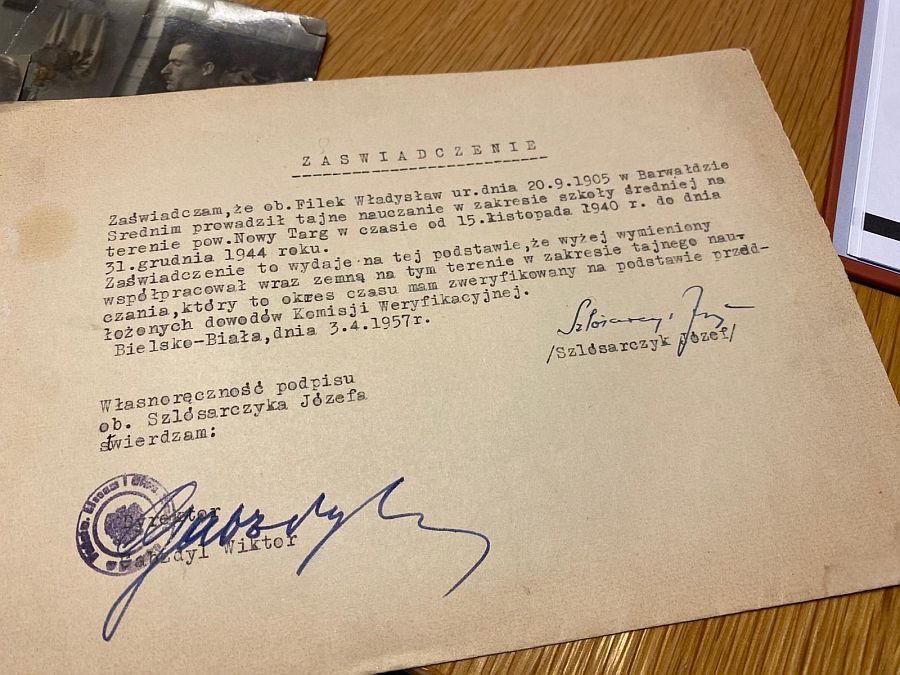 ZASWIADCZENIE
Zaświadczam,że ob.Filek Władysław ur.dnia 20.9.1905 w Barwałdzie
Srednim prowadził tajne nauczanie w zakresie szkoły średniej na
terenie pow.Nowy Targ w czasie od 15.listopada 1940 r. do dnia
31.grudnia 1944 roku.
Zaświadczenie to wydaje na tej podstawie,że wyżej wymieniony
współpracował wraz zemną na tym terenie w zakresie tajnego nau-
czania,który to okres czasu mam zweryfikowany na podstawie przed-
łożonych dowodów Komisji Weryfikacyjnej.
Bielsko-Biała,dnia 3.4.1957r.
/Szlósarczyk Józef/
Własnoręczność podpisu
ob. Szlósarczyka Józefa
stwierdzam:
Dyrektor
Gabzdyl Wiktor
Gabzdyl